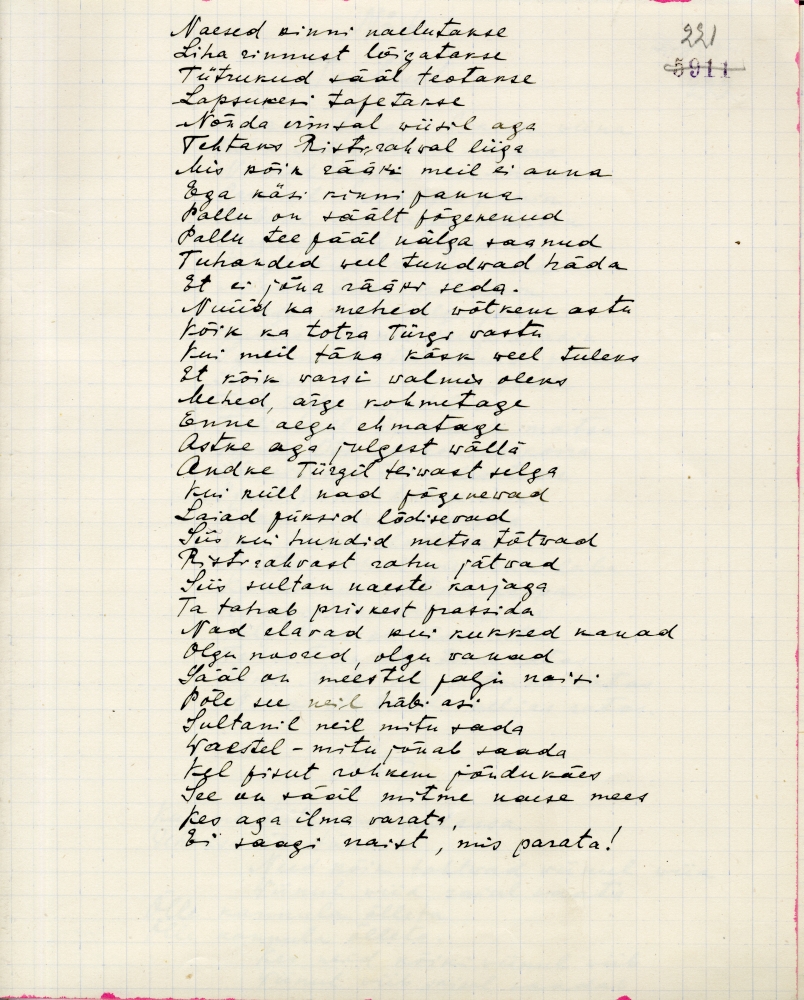 221
5911
Naesed kinni naelutakse
Liha rinnust lõigatakse
Tütrukud sääl teotakse
Lapsukesi tapetakse
Nõnda wiisil aga
Tehtaks Ristirahwal liiga
Mis kõik rääki meil ei anna
Ega käsi kinni panna
Pallu on säält põgenenud
Pallu tee pääl nälga saanud
Tuhanded weel tundwad häda
Et ei jõua rääki seda.
Nüüd ka mehed wõtkem astu
Kõik ka totra Türgi vastu
Kui meil täna käsk weel tuleks
Et kõik warsi walmis oleks
Mehed, ärge kohmetage
Enne aegu ehmatage
Astke aga julgest wällä
Andke Türgil teiwast selga
Kui küll nad põgenewad
Laiad püksid lõdisevad
Siis kui hundid metsa tõtwad
Ristirahvast rahu jätvad
Siis sultan naeste karjaga
Ta tahab priskest prassida
Nad elavad kui kukked kanad
Olgu noored, olgu vanad
Sääl on meestel palju naisi
Põle see neil häbi asi
Sultanil neil mitu sada
Waestel - mitu jõuab saada
Kel pisut rohkem jõudu käes
See on sääl mitme naese mees
Kes aga ilma varata,
Ei saagi naist, mis parata!